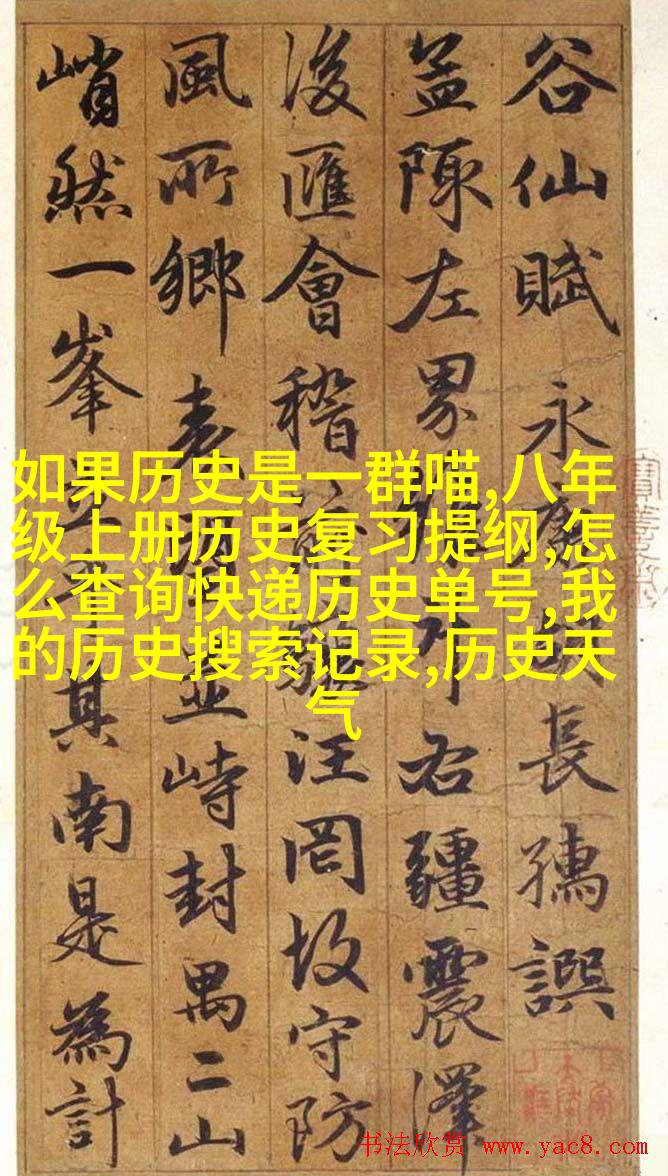 谷仙賦永長孺譔
陬左界右疆震澤
匯會稽汪罔故守防
風所鄉並峙封禺二山
峭然一峯其南是為計
如果历史是一群喵,八年
级上册历史复习提纲,怎
么查询快递历史单号,我
的历史搜索记录,历史天
气
书法欣赏 www.yac8.com